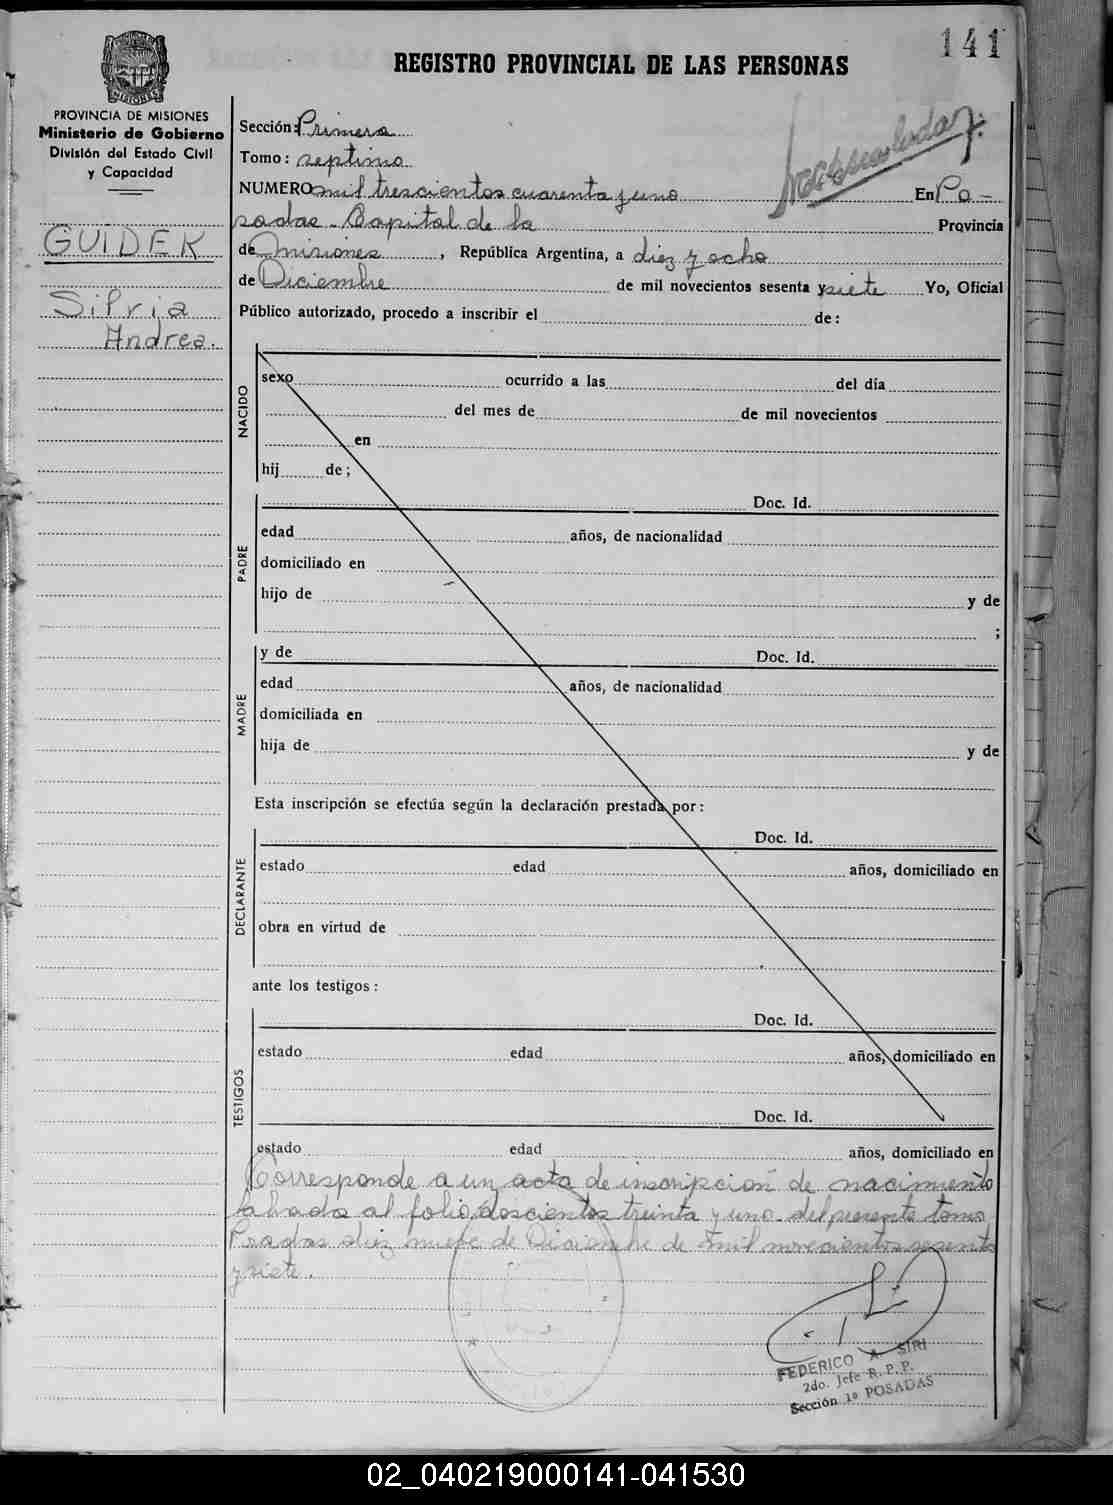 141
REGISTRO PROVINCIAL DE LAS PERSONAS
MISIONES
PROVINCIA DE MISIONES
Ministerio de Gobierno
División del Estado Civil
y Capacidad
GUIDEK
Silvia
Andrea.
Sección: Primera
Tomo: septimo
NUMERO mil trescientos cuarenta y uno En Po-
sadas. Capital de la Provincia
de Misiones, República Argentina, a diez y ocho
de Diciembre de mil novecientos sesenta y siete Yo, Oficial
Público autorizado, procedo a inscribir el de:
NACIDO
sexo ocurrido a las del día
del mes de de mil novecientos
en
hij de;
PADRE
Doc. Id.
edad años, de nacionalidad
domiciliado en
hijo de y de
;
MADRE
y de Doc. Id.
edad años, de nacionalidad
domiciliada en
hija de y de
Esta inscripción se efectúa según la declaración prestada por:
DECLARANTE
Doc. Id.
estado edad años, domiciliado en
obra en virtud de
ante los testigos:
TESTIGOS
Doc. Id.
estado edad años, domiciliado en
Doc. Id.
estado edad años, domiciliado en
Corresponde a un acta de inscripcion de nacimiento
labrada al folio doscientos treinta y uno del presente tomo
diez nueve de Diciembre de mil novecientos sesenta
y siete.
FEDERICO A. SIRI
2do. Jefe R. P. P.
Sección 1º POSADAS
02_040219000141-041530